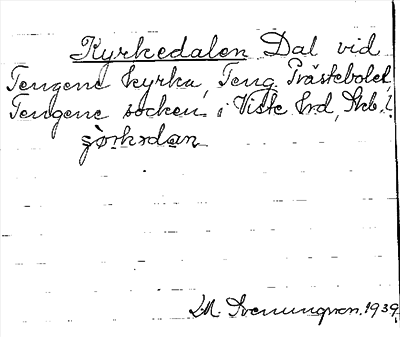 Kyrkedalen Dal vid
Tengene kyrka, Teng. Prästebolet,
Tengene socken i Viste hrd, Skb. l.
L.M. Svenungsson. 1939.